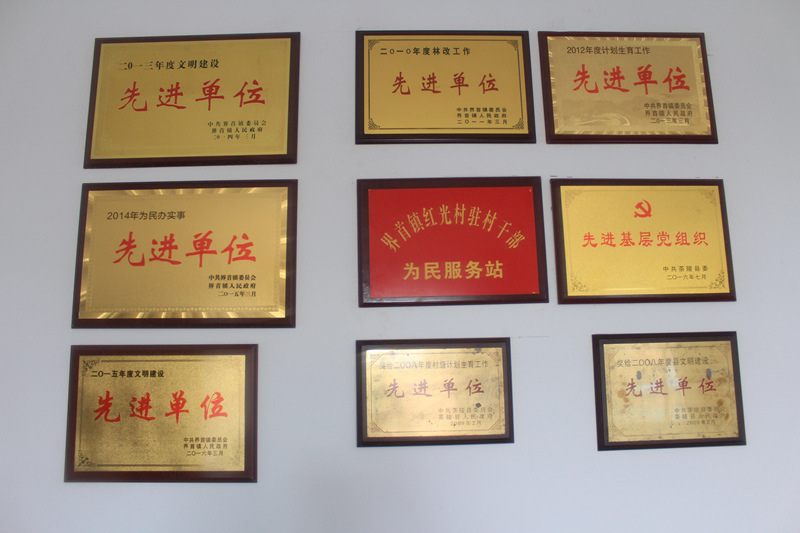 二〇一三年度文明建设
先进单位
中共界首镇委员会
界首镇人民政府
二〇一四年三月
二〇一〇年度林改工作
先进单位
中共界首镇委员会
界首镇人民政府
二〇一一年三月
2012年度计划生育工作
先进单位
中共界首镇委员会
界首镇人民政府
二〇一三年三月
2014年为民办实事
先进单位
中共界首镇委员会
界首镇人民政府
二〇一五年三月
界首镇红光村驻村干部
为民服务站
先进基层党组织
中共茶陵县委
二〇一六年七月
二〇一五年度文明建设
先进单位
中共界首镇委员会
界首镇人民政府
二〇一六年三月
奖给二〇〇八年度村级计划生育工作
先进单位
中共茶陵县委员会
茶陵县人民政府
2009年2月
奖给二〇〇八年度县文明建设
先进单位
中共茶陵县委员会